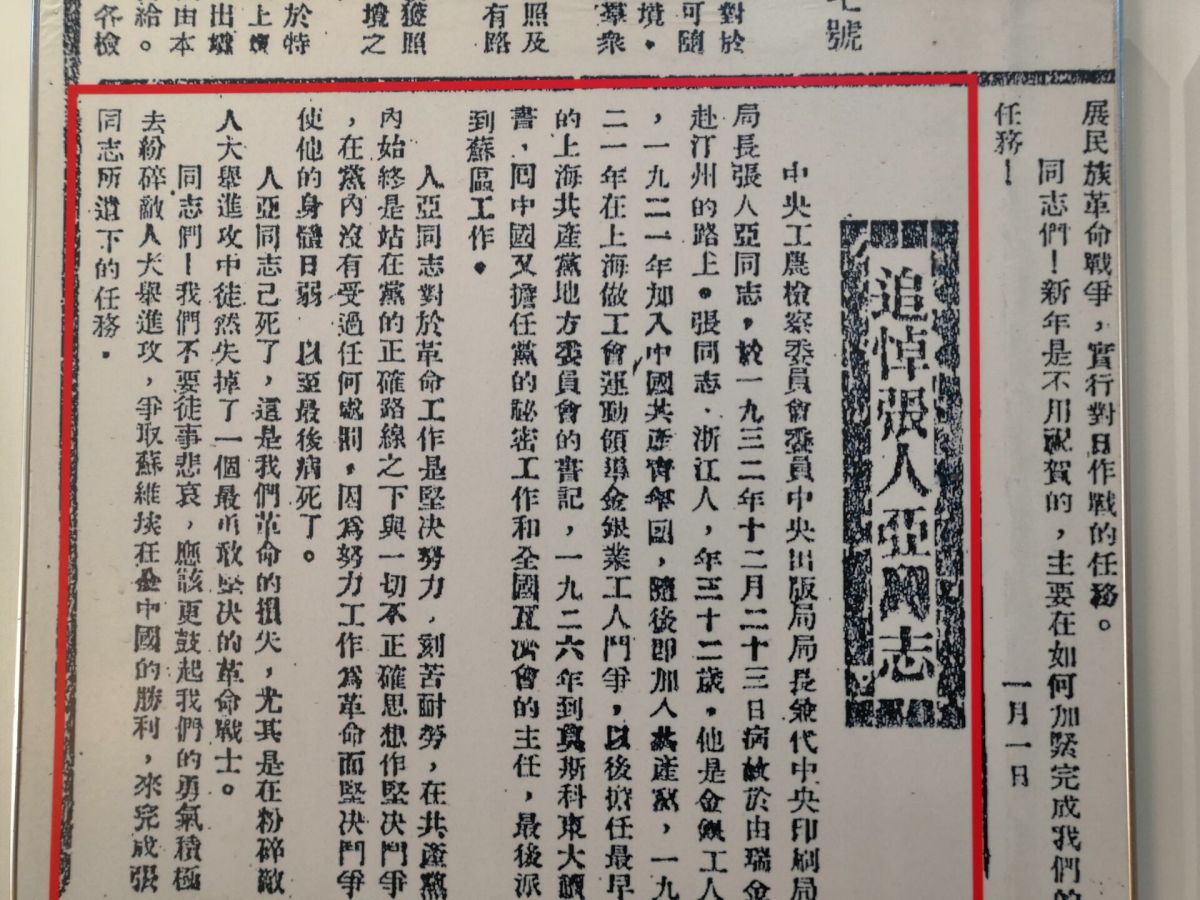 號
對於
可隨
境。
羣衆
照及
有路
獲照
境之
於特
上
出
由本
給。
各檢
展民族革命戰爭，實行對日作戰的任務。
同志們！新年是不用祝賀的，主要在如何加緊完成我們的
任務！
一月一日
追悼張人亞同志
中央工農檢察委員會委員中央出版局局長兼代中央印刷局
局長張人亞同志，於一九三二年十二月二十三日病故於由瑞金
赴汀州的路上。張同志．浙江人，年三十二歲，他是金銀工人
，一九二一年加入中國共產青年團，隨後即加入共產黨，一九
二一年在上海做工會運動領導金銀業工人鬥爭，以後擔任最早
的上海共產黨地方委員會的書記，一九二六年到莫斯科東大讀
書，回中國又擔任黨的祕密工作和全國互濟會的主任，最後派
到蘇區工作。
人亞同志對於革命工作是堅决努力．刻苦耐勞，在共產黨
內始終是站在黨的正確路線之下與一切不正確思想作堅决鬥爭
，在黨內沒有受過任何處罰，因爲努力工作爲革命而堅决鬥爭
使他的身體日弱　以至最後病死了。
人亞同志已死了，這是我們革命的損失，尤其是在粉碎敵
人大舉進攻中徒然失掉了一個最勇敢堅决的革命戰士。
同志們！我們不要徒事悲哀，應該更鼓起我們的勇氣積極
去粉碎敵人大舉進攻，爭取蘇維埃在全中國的勝利，來完成張
同志所遺下的任務．